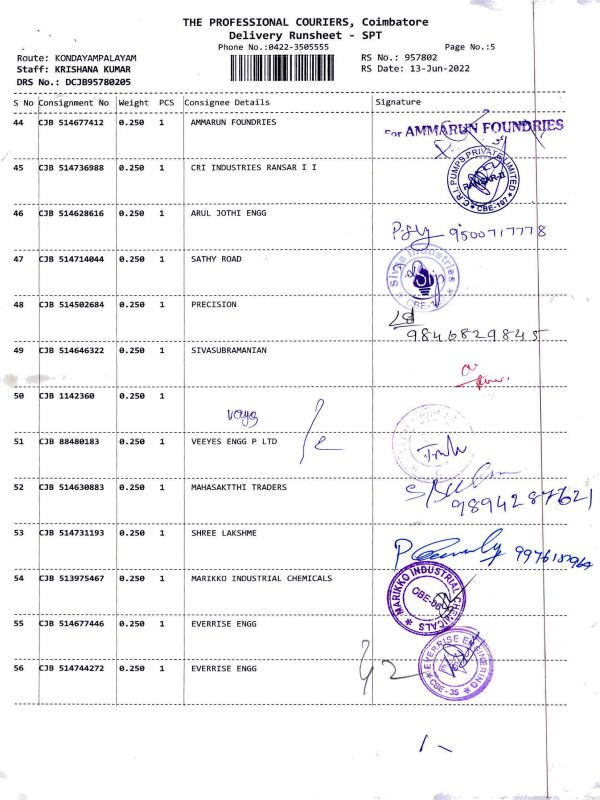 THE PROFESSIONAL COURIERS, Coimbatore
Delivery Runsheet - SPT
Phone No.:0422-3505555 Page No.:5
Route: KONDAYAMPALAYAM RS No.: 957802
Staff: KRISHANA KUMAR RS Date: 13-Jun-2022
DRS No.: DCJB95780205
S No Consignment No Weight PCS Consignee Details Signature
44 CJB 514677412 0.250 1 AMMARUN FOUNDRIES
For AMMARUN FOUNDRIES
45 CJB 514736988 0.250 1 CRI INDUSTRIES RANSAR I I
C.R.I. PUMPS PRIVATE LIMITED
RANSAR-II
CBE-107
46 CJB 514628616 0.250 1 ARUL JOTHI ENGG
9500717778
47 CJB 514714044 0.250 1 SATHY ROAD
Sivya Industries
48 CJB 514502684 0.250 1 PRECISION
9846829845
49 CJB 514646322 0.250 1 SIVASUBRAMANIAN
50 CJB 1142360 0.250 1
51 CJB 88480183 0.250 1 VEEYES ENGG P LTD
52 CJB 514630883 0.250 1 MAHASAKTTHI TRADERS
53 CJB 514731193 0.250 1 SHREE LAKSHME
54 CJB 513975467 0.250 1 MARIKKO INDUSTRIAL CHEMICALS
MARIKKO INDUSTRIAL CHEMICALS
55 CJB 514677446 0.250 1 EVERRISE ENGG
56 CJB 514744272 0.250 1 EVERRISE ENGG
EVERRISE ENGINEERING
CBE-35